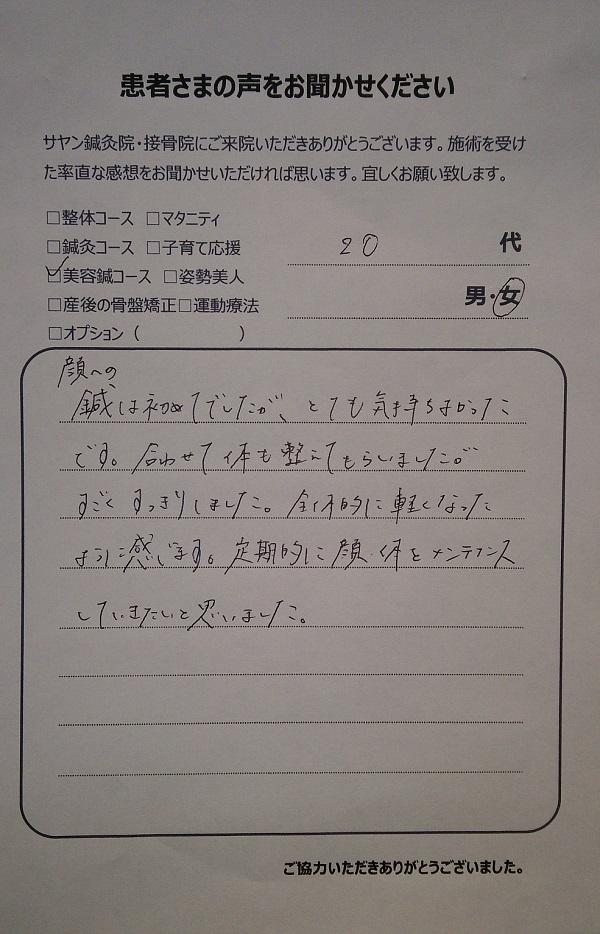 患者さまの声をお聞かせください
サヤン鍼灸院・接骨院にご来院いただきありがとうございます。施術を受け
た率直な感想をお聞かせいただければ思います。宜しくお願い致します。
□整体コース □マタニティ
□鍼灸コース □子育て応援
☑美容鍼コース □姿勢美人
□産後の骨盤矯正□運動療法
□オプション（　　　　　　）
20 代
男・女
顔への
鍼は初めてでしたが、とても気持ちよかった
です。合わせて体も整えてもらいましたが
すごくすっきりしました。全体的に軽くなった
ように感じます。定期的に顔・体をメンテナンス
していきたいと思いました。
ご協力いただきありがとうございました。